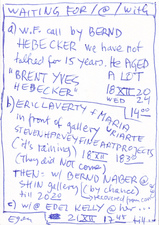 WAITING FOR /@/ with
a) W.F. call by BERND
HEBECKER we have not
talked for 15 years. He AGED
"BRENT YVES A LOT
HEBECKER" 18 XII 20
WED 24
14 00
b) ERIC LAVERTY + MARIA
in front of gallery URIARTE
STEVENHARVEYFINEARTPROJECTS
(it's raining) 18 XII 18 30
(They did not come)
THEN: w/ BERND NABER @
SHIN gallery (by chance)
till 20 20
c) w/ @ EDEL KELLY @ her
21 XII 17 45 till